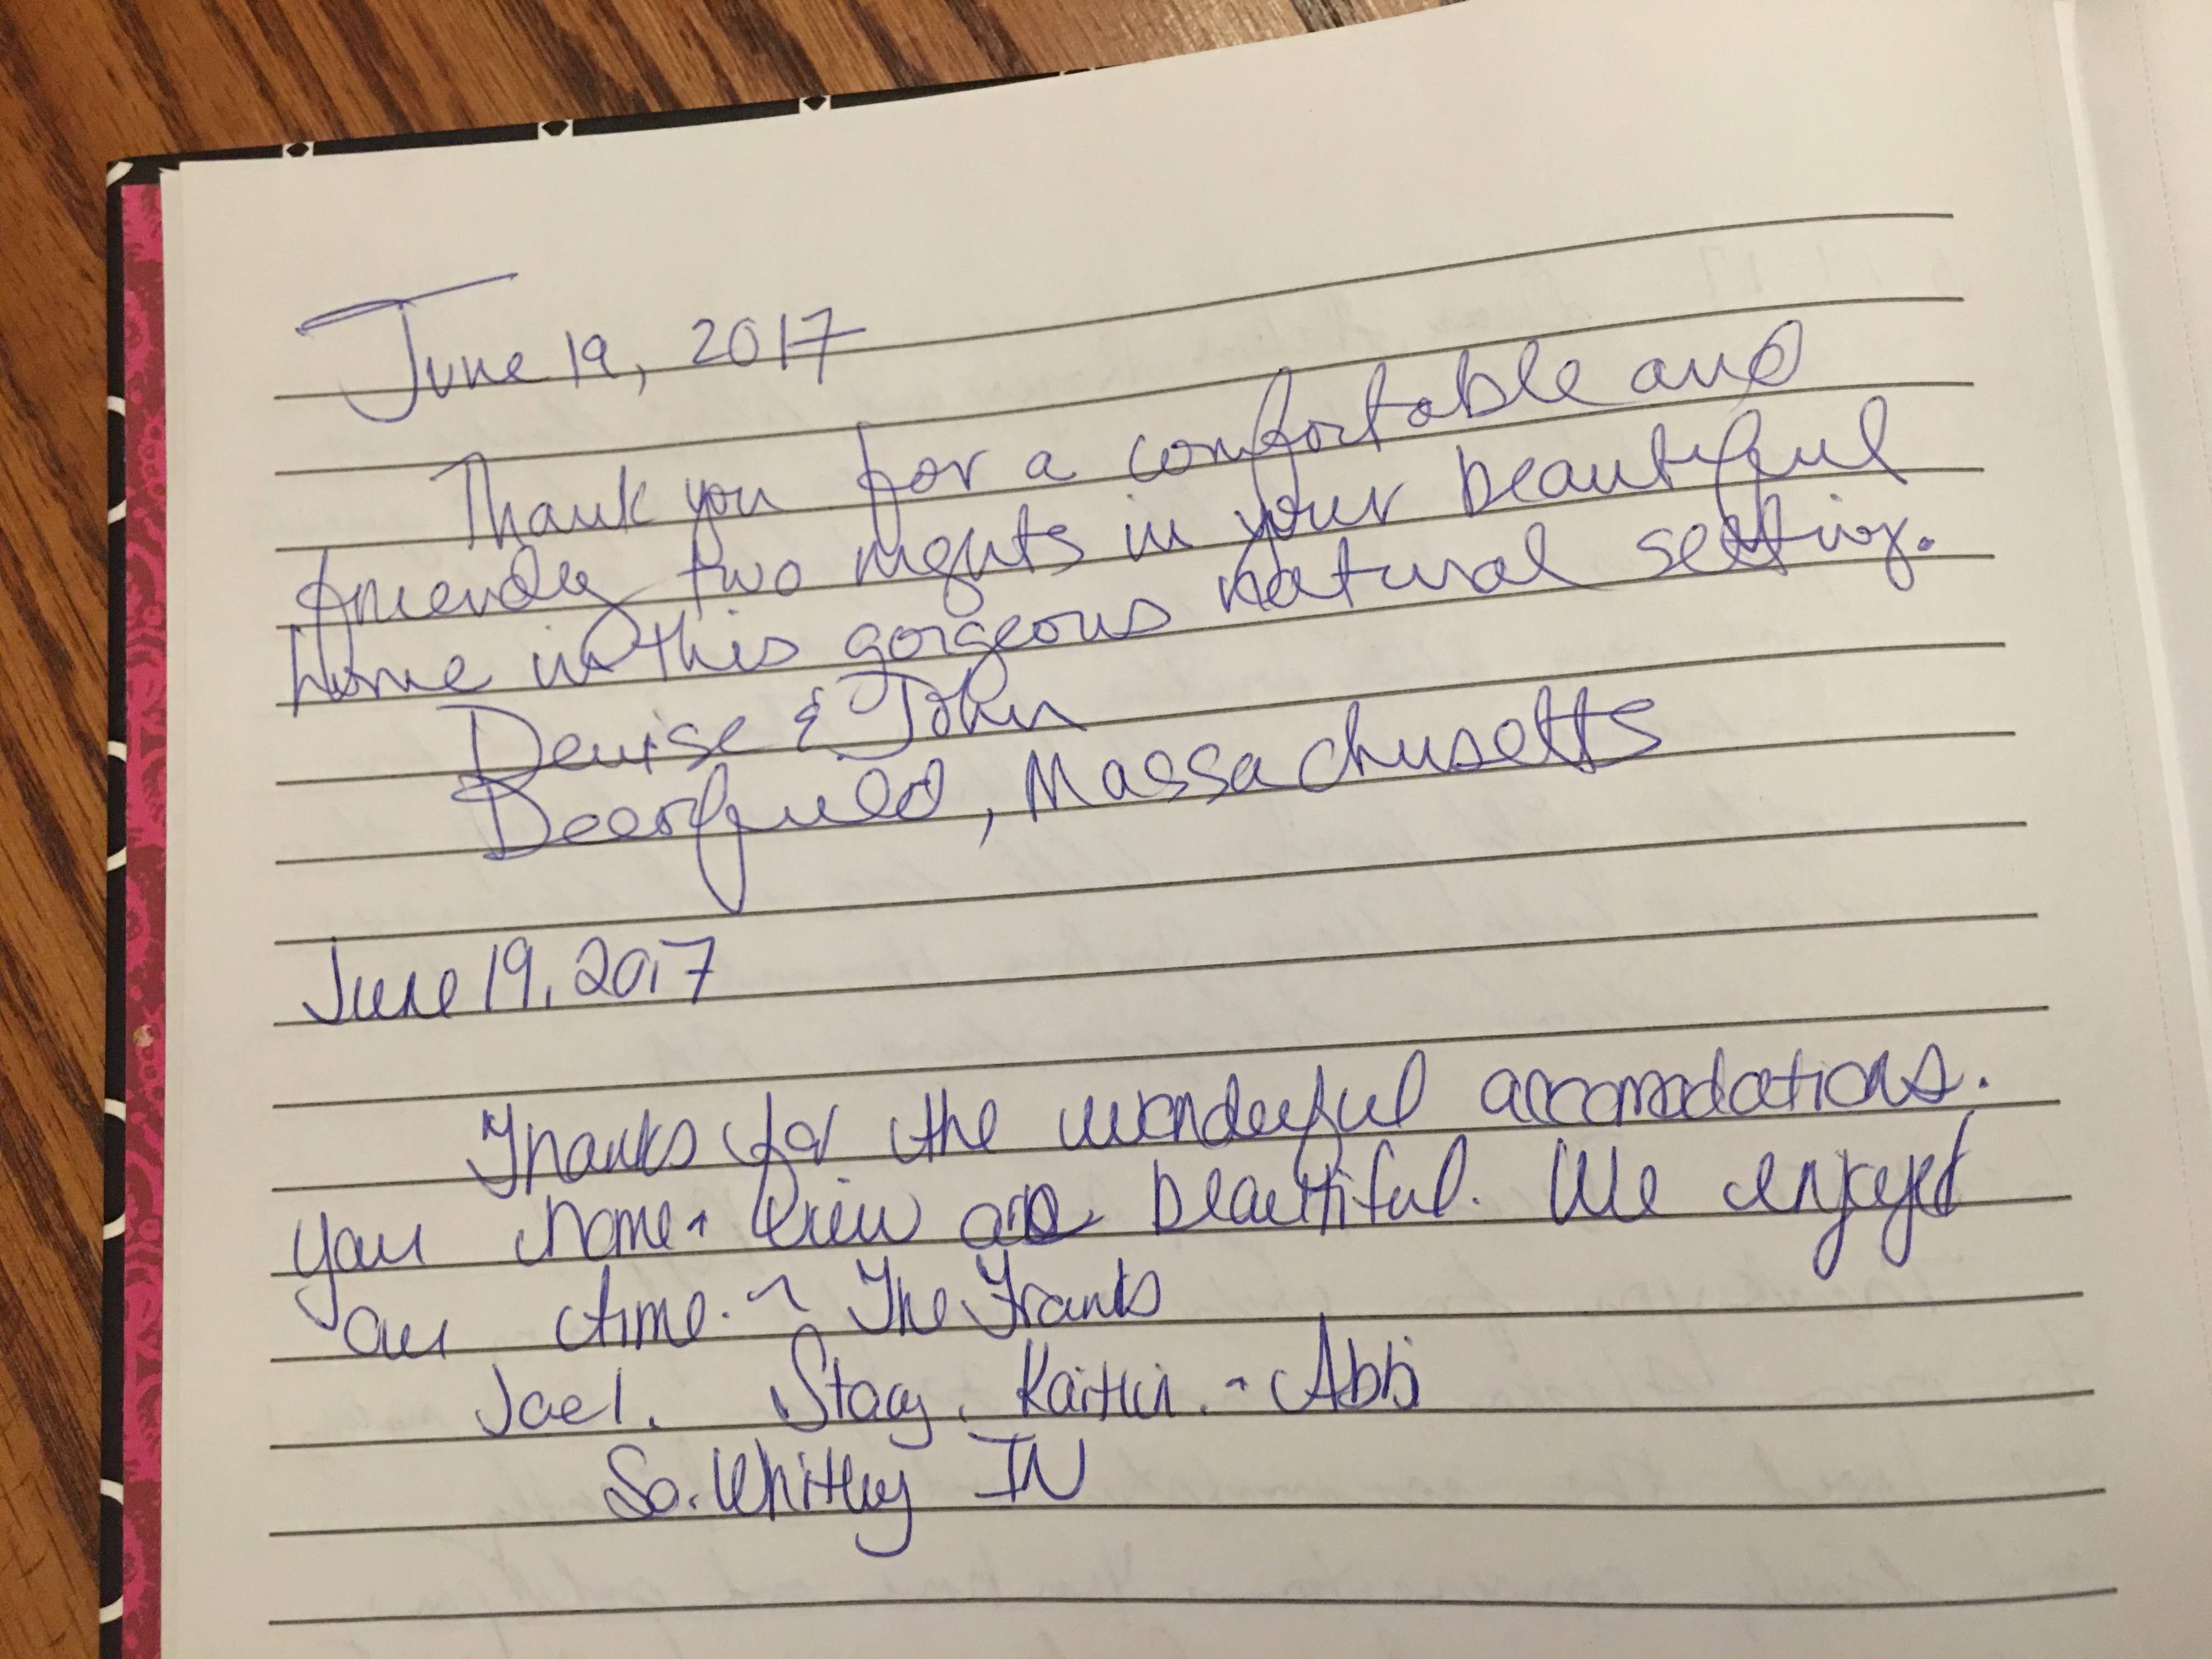 June 19, 2017
Thank you for a comfortable and
friendly two nights in your beautiful
home in this gorgeous natural setting.
Denise & John
Deerfield, Massachusetts
June 19, 2017
Thanks for the wonderful accomodations.
Your home + view are beautiful. We enjoyed
our time. ~ The Franks
Joel, Stacy, Kaitlin, + Abbi
So. Whitley IN